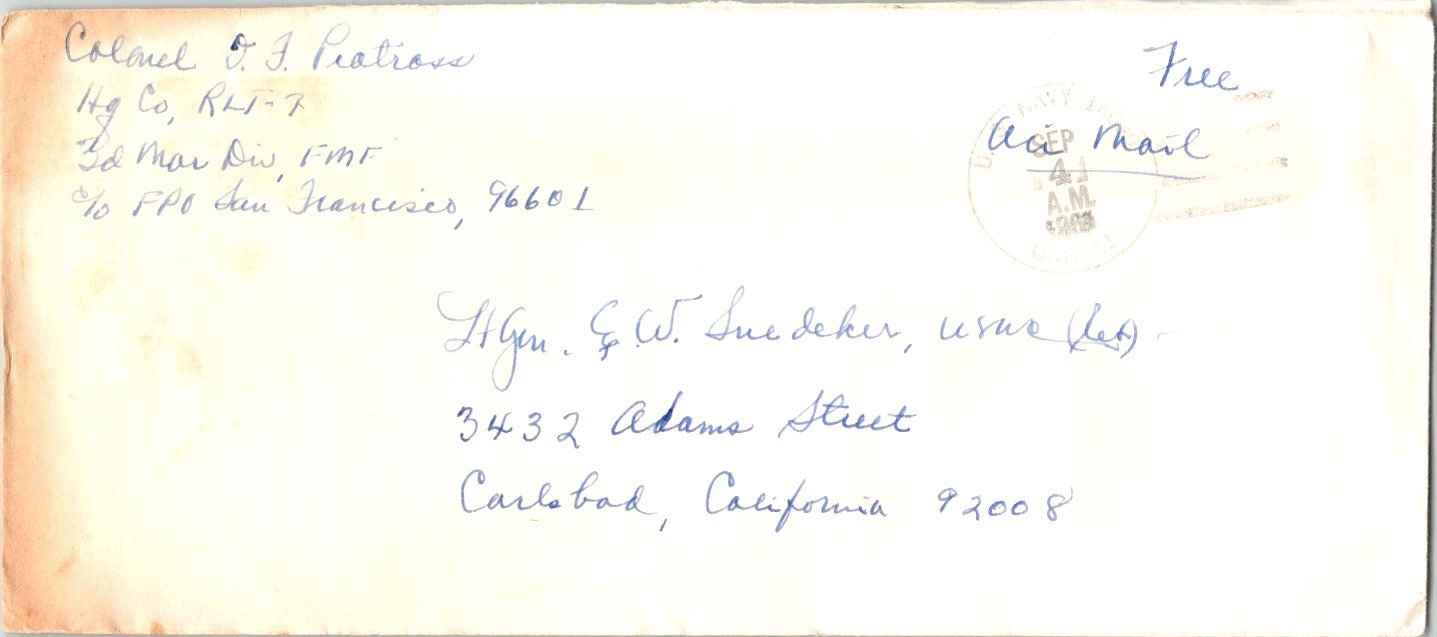 Colonel O. F. Peatross
Hq Co, RLT-7
3d Mar Div, FMF
c/o FPO San Francisco, 96601
Free
Air Mail
U.S. NAVY
SEP
A.M.
UNIT
LtGen. E. W. Snedeker, USMC (Ret)
3432 Adams Street
Carlsbad, California 92008